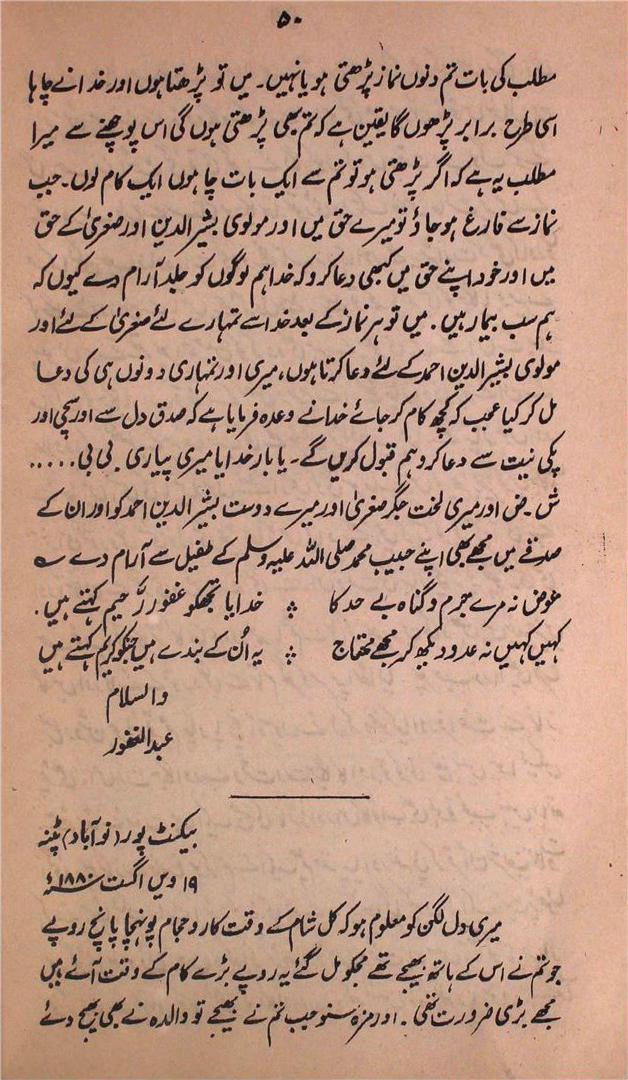 ۵۰
مطلب کی بات تم دونوں نماز پڑھتی ہو یا نہیں۔ میں تو پڑھتا ہوں اور خدا نے چاہا
اسی طرح برابر پڑھوں گا یقین ہے کہ تم بھی پڑھتی ہوں گی اس پوچھنے سے میرا
مطلب یہ ہے کہ اگر پڑھتی ہو تو تم سے ایک بات چاہوں ایک کام لوں۔ جب
نماز سے فارغ ہو جاؤ تو میرے حق میں اور مولوی بشیر الدین اور صغریٰ کے حق
میں اور خود اپنے حق میں کبھی دعا کرو کہ خدا ہم لوگوں کو جلد آرام دے کیوں کہ
ہم سب بیمار ہیں۔ میں تو ہر نماز کے بعد خدا سے تمہارے لئے صغریٰ کے لئے اور
مولوی بشیر الدین احمد کے لئے دعا کرتا ہوں، میری اور تمہاری دونوں ہی کی دعا
مل کر کیا عجب کہ کچھ کام کر جائے خدا نے وعدہ فرمایا ہے کہ صدق دل سے اور سچی اور
پکی نیت سے دعا کرو ہم قبول کریں گے۔ یا بار خدایا میری پیاری بی بی.....
ش۔ض اور میری لخت جگر صغریٰ اور میرے دوست بشیر الدین احمد کو اور ان کے
صدقے میں مجھے بھی اپنے حبیب محمد صلی اللہ علیہ وسلم کے طفیل سے آرام دے ؎
عوض نہ مرے جرم و گناہ بے حد کا ؞ خدایا تجھکو غفور رّحیم کہتے ہیں۔
کہیں کہیں نہ عدو دیکھ کر مجھے محتاج ؞ یہ اُن کے بندے ہیں جنکو کریم کہتے ہیں
والسلام
عبدالغفور
بیکنٹ پور (نوآباد) پٹنہ
۱۹ ویں اگست ۱۸۸۰ء
میری دل لگن کو معلوم ہو کہ کل شام کے وقت کارو حجام پونہچا پانچ روپے
جو تم نے اس کے ہاتھ بھیجے تھے مجکو مل گئے یہ روپے بڑے کام کے وقت آئے ہیں
مجھے بڑی ضرورت تھی۔ اور مزہ سنو جب تم نے بھیجے تو والدہ نے بھی بھیج دئے